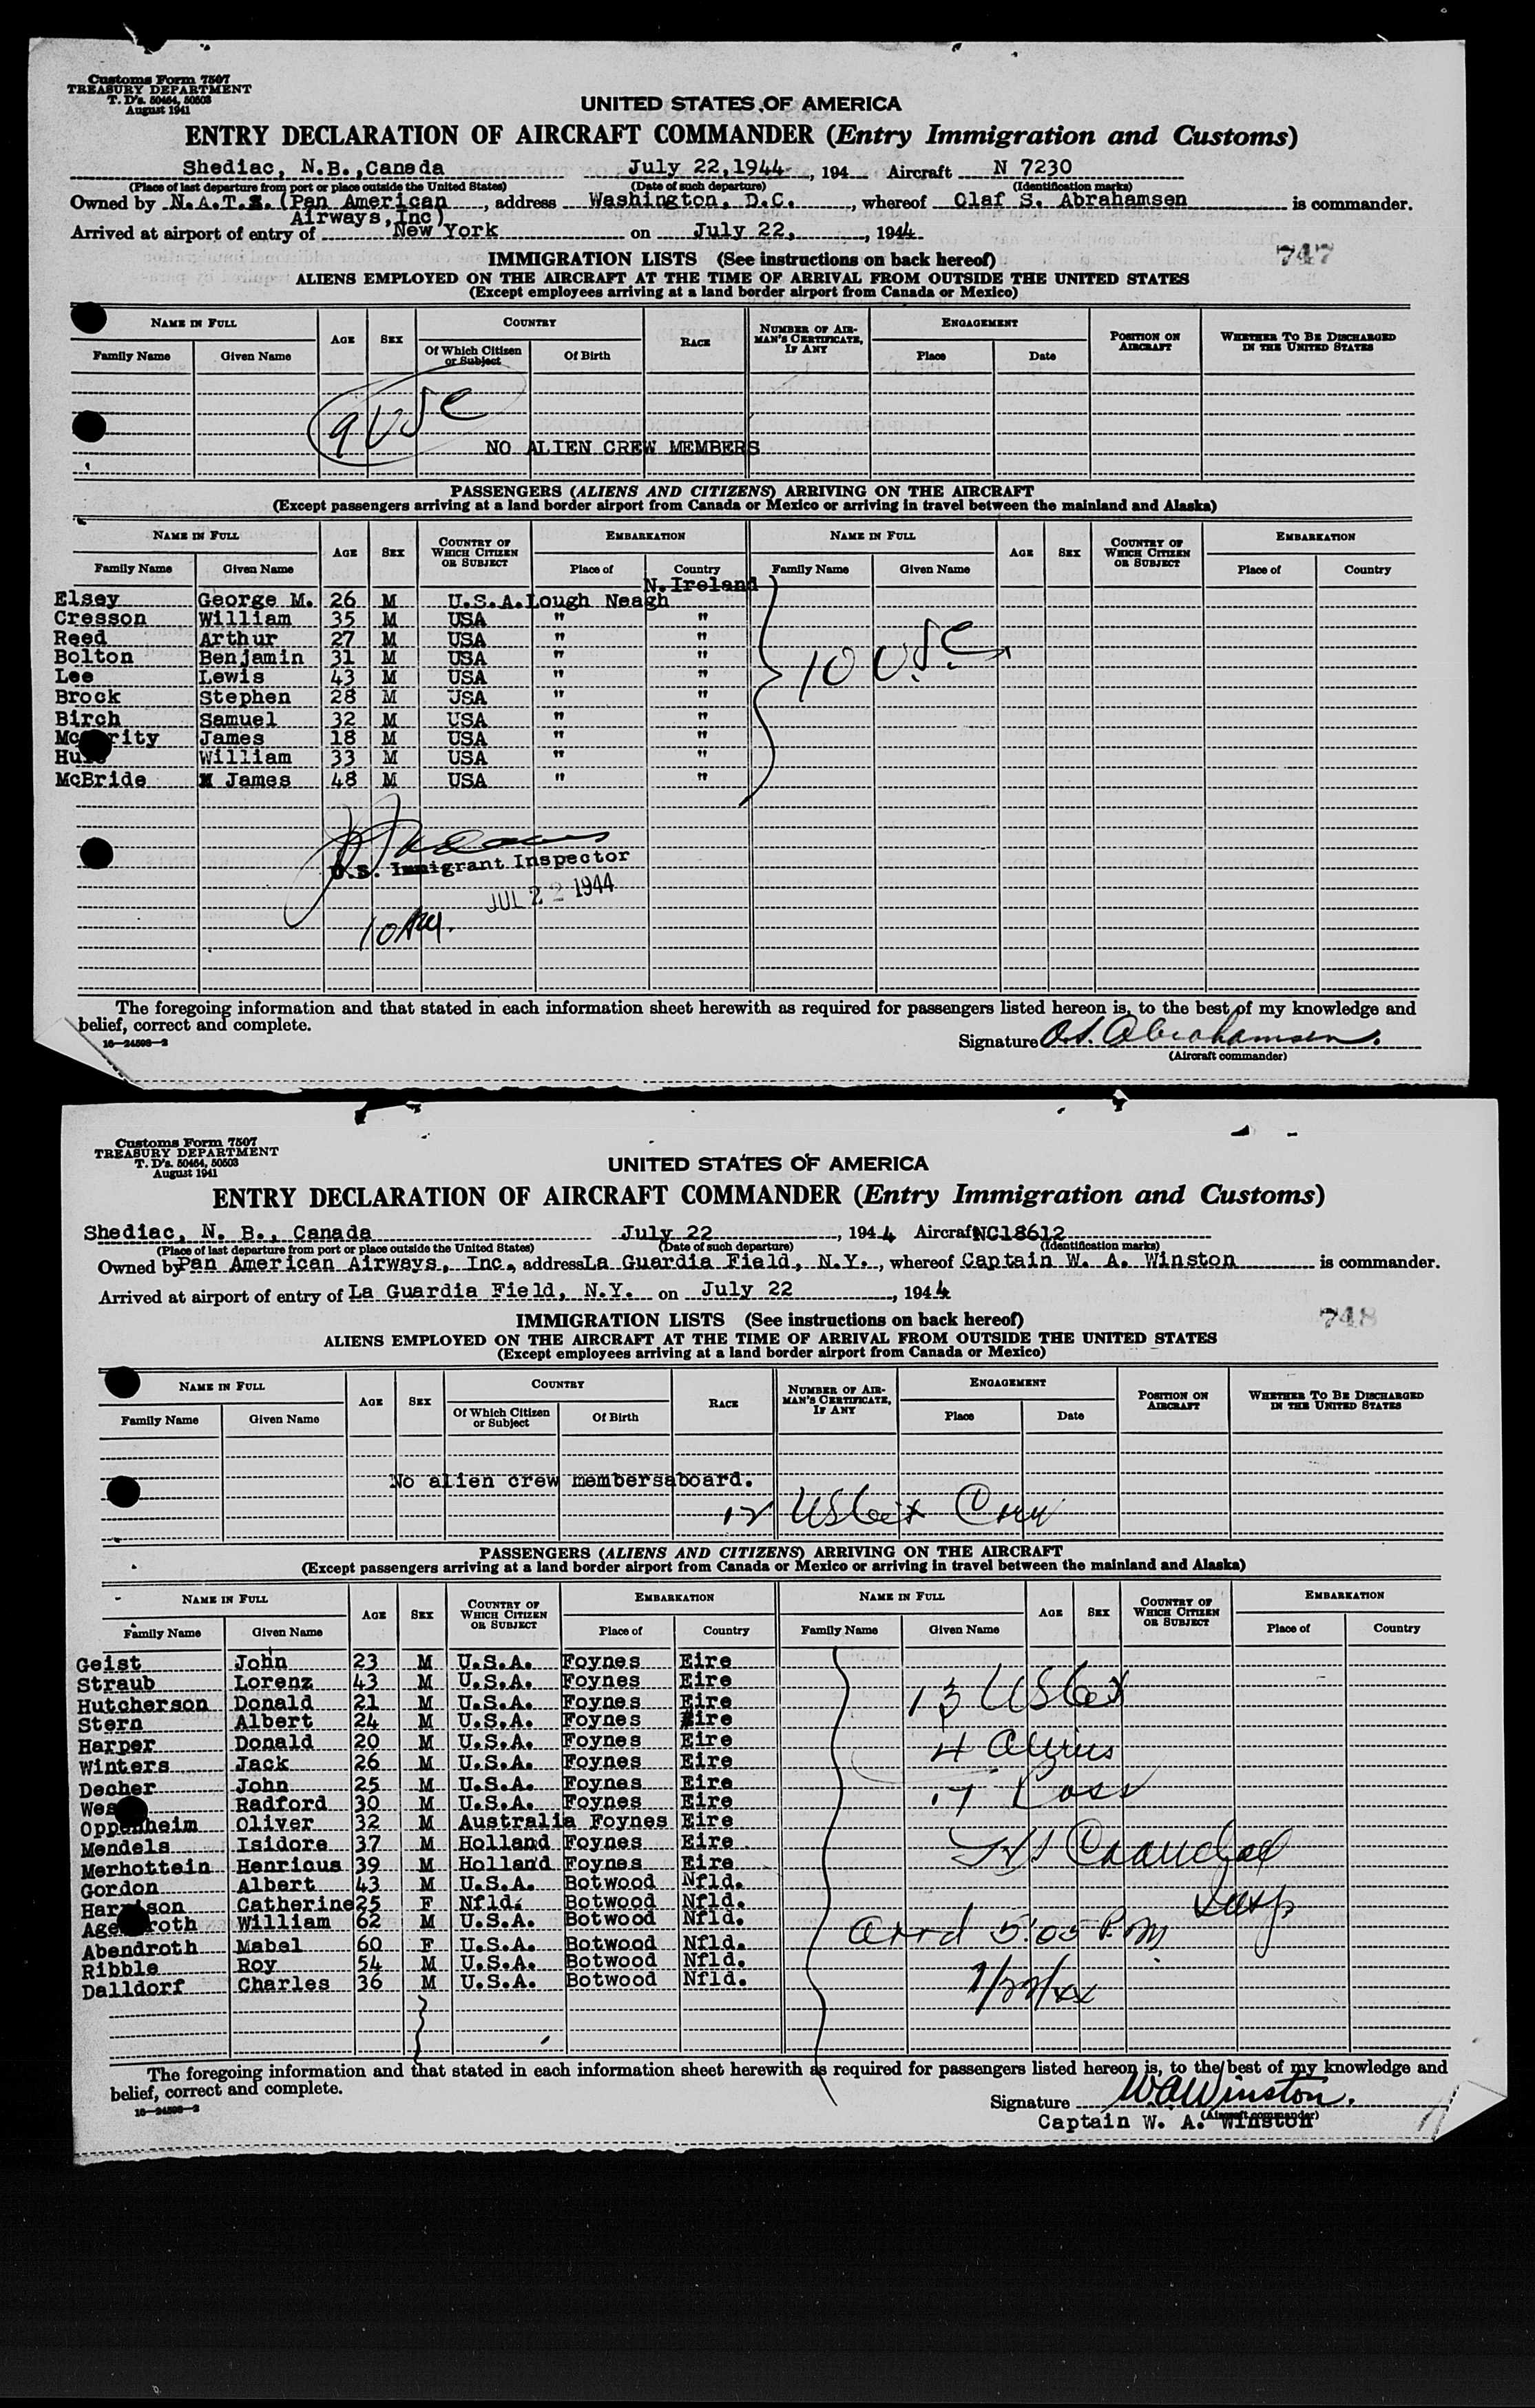 Customs Form 7507
TREASURY DEPARTMENT
T. D's. 50464, 50503
August 1941
UNITED STATES OF AMERICA
ENTRY DECLARATION OF AIRCRAFT COMMANDER (Entry Immigration and Customs)
Shediac, N.B., Canada July 22, 1944, 194 Aircraft N 7230
(Place of last departure from port or place outside the United States) (Date of such departure) (Identification marks)
Owned by N.A.T.S. (Pan American Airways, Inc), address Washington, D.C., whereof Olaf S. Abrahamsen is commander.
Arrived at airport of entry of New York on July 22, 1944
IMMIGRATION LISTS (See instructions on back hereof) 747
ALIENS EMPLOYED ON THE AIRCRAFT AT THE TIME OF ARRIVAL FROM OUTSIDE THE UNITED STATES
(Except employees arriving at a land border airport from Canada or Mexico)
NAME IN FULL AGE SEX COUNTRY RACE NUMBER OF AIRMAN'S CERTIFICATE, IF ANY ENGAGEMENT POSITION ON AIRCRAFT WHETHER TO BE DISCHARGED IN THE UNITED STATES
Family Name Given Name Of Which Citizen or Subject Of Birth Place Date
9 USC
NO ALIEN CREW MEMBERS
PASSENGERS (ALIENS AND CITIZENS) ARRIVING ON THE AIRCRAFT
(Except passengers arriving at a land border airport from Canada or Mexico or arriving in travel between the mainland and Alaska)
NAME IN FULL AGE SEX COUNTRY OF WHICH CITIZEN OR SUBJECT EMBARKATION NAME IN FULL AGE SEX COUNTRY OF WHICH CITIZEN OR SUBJECT EMBARKATION
Family Name Given Name Place of Country Family Name Given Name Place of Country
N. Ireland
Elsey George M. 26 M U.S.A. Lough Neagh
Cresson William 35 M USA " "
Reed Arthur 27 M USA " "
Bolton Benjamin 31 M USA " "
Lee Lewis 43 M USA " "
Brock Stephen 28 M USA " "
Birch Samuel 32 M USA " "
James 18 M USA " "
William 33 M USA " "
McBride James 48 M USA " "
10 USC
U.S. Immigrant Inspector
JUL 22 1944
10 AM.
The foregoing information and that stated in each information sheet herewith as required for passengers listed hereon is, to the best of my knowledge and
belief, correct and complete.
16—24598—2
Signature O.S. Abrahamsen.
(Aircraft commander)
Customs Form 7507
TREASURY DEPARTMENT
T. D's. 50464, 50503
August 1941
UNITED STATES OF AMERICA
ENTRY DECLARATION OF AIRCRAFT COMMANDER (Entry Immigration and Customs)
Shediac, N. B., Canada July 22, 1944 Aircraft NC18612
(Place of last departure from port or place outside the United States) (Date of such departure) (Identification marks)
Owned by Pan American Airways, Inc., address La Guardia Field, N.Y., whereof Captain W. A. Winston is commander.
Arrived at airport of entry of La Guardia Field, N.Y. on July 22, 1944
IMMIGRATION LISTS (See instructions on back hereof) 748
ALIENS EMPLOYED ON THE AIRCRAFT AT THE TIME OF ARRIVAL FROM OUTSIDE THE UNITED STATES
(Except employees arriving at a land border airport from Canada or Mexico)
NAME IN FULL AGE SEX COUNTRY RACE NUMBER OF AIRMAN'S CERTIFICATE, IF ANY ENGAGEMENT POSITION ON AIRCRAFT WHETHER TO BE DISCHARGED IN THE UNITED STATES
Family Name Given Name Of Which Citizen or Subject Of Birth Place Date
No alien crew membersaboard.
12 US Cit Crew
PASSENGERS (ALIENS AND CITIZENS) ARRIVING ON THE AIRCRAFT
(Except passengers arriving at a land border airport from Canada or Mexico or arriving in travel between the mainland and Alaska)
NAME IN FULL AGE SEX COUNTRY OF WHICH CITIZEN OR SUBJECT EMBARKATION NAME IN FULL AGE SEX COUNTRY OF WHICH CITIZEN OR SUBJECT EMBARKATION
Family Name Given Name Place of Country Family Name Given Name Place of Country
Geist John 23 M U.S.A. Foynes Eire
Straub Lorenz 43 M U.S.A. Foynes Eire
Hutcherson Donald 21 M U.S.A. Foynes Eire
Stern Albert 24 M U.S.A. Foynes Eire
Harper Donald 20 M U.S.A. Foynes Eire
Winters Jack 26 M U.S.A. Foynes Eire
Decher John 25 M U.S.A. Foynes Eire
Radford 30 M U.S.A. Foynes Eire
Oppenheim Oliver 32 M Australia Foynes Eire
Mendels Isidore 37 M Holland Foynes Eire
Merhottein Henricus 39 M Holland Foynes Eire
Gordon Albert 43 M U.S.A. Botwood Nfld.
Harrison Catherine 25 F Nfld. Botwood Nfld.
William 62 M U.S.A. Botwood Nfld.
Abendroth Mabel 60 F U.S.A. Botwood Nfld.
Ribble Roy 54 M U.S.A. Botwood Nfld.
Dalldorf Charles 36 M U.S.A. Botwood Nfld.
13 US Cit
4 Aliens
17 Pass
Insp
Arrd 5:05 P.M.
7/22/44
The foregoing information and that stated in each information sheet herewith as required for passengers listed hereon is, to the best of my knowledge and
belief, correct and complete.
16—24598—2
Signature W.A. Winston.
(Aircraft commander)
Captain W. A. Winston